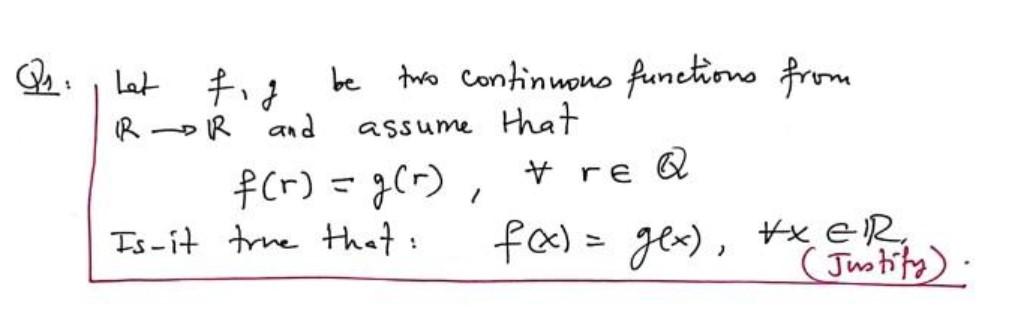 Q1: Let f, g be two continuous functions from
ℝ → ℝ and assume that
f(r) = g(r), ∀ r ∈ ℚ
Is-it true that: f(x) = g(x), ∀x ∈ ℝ.
(Justify).